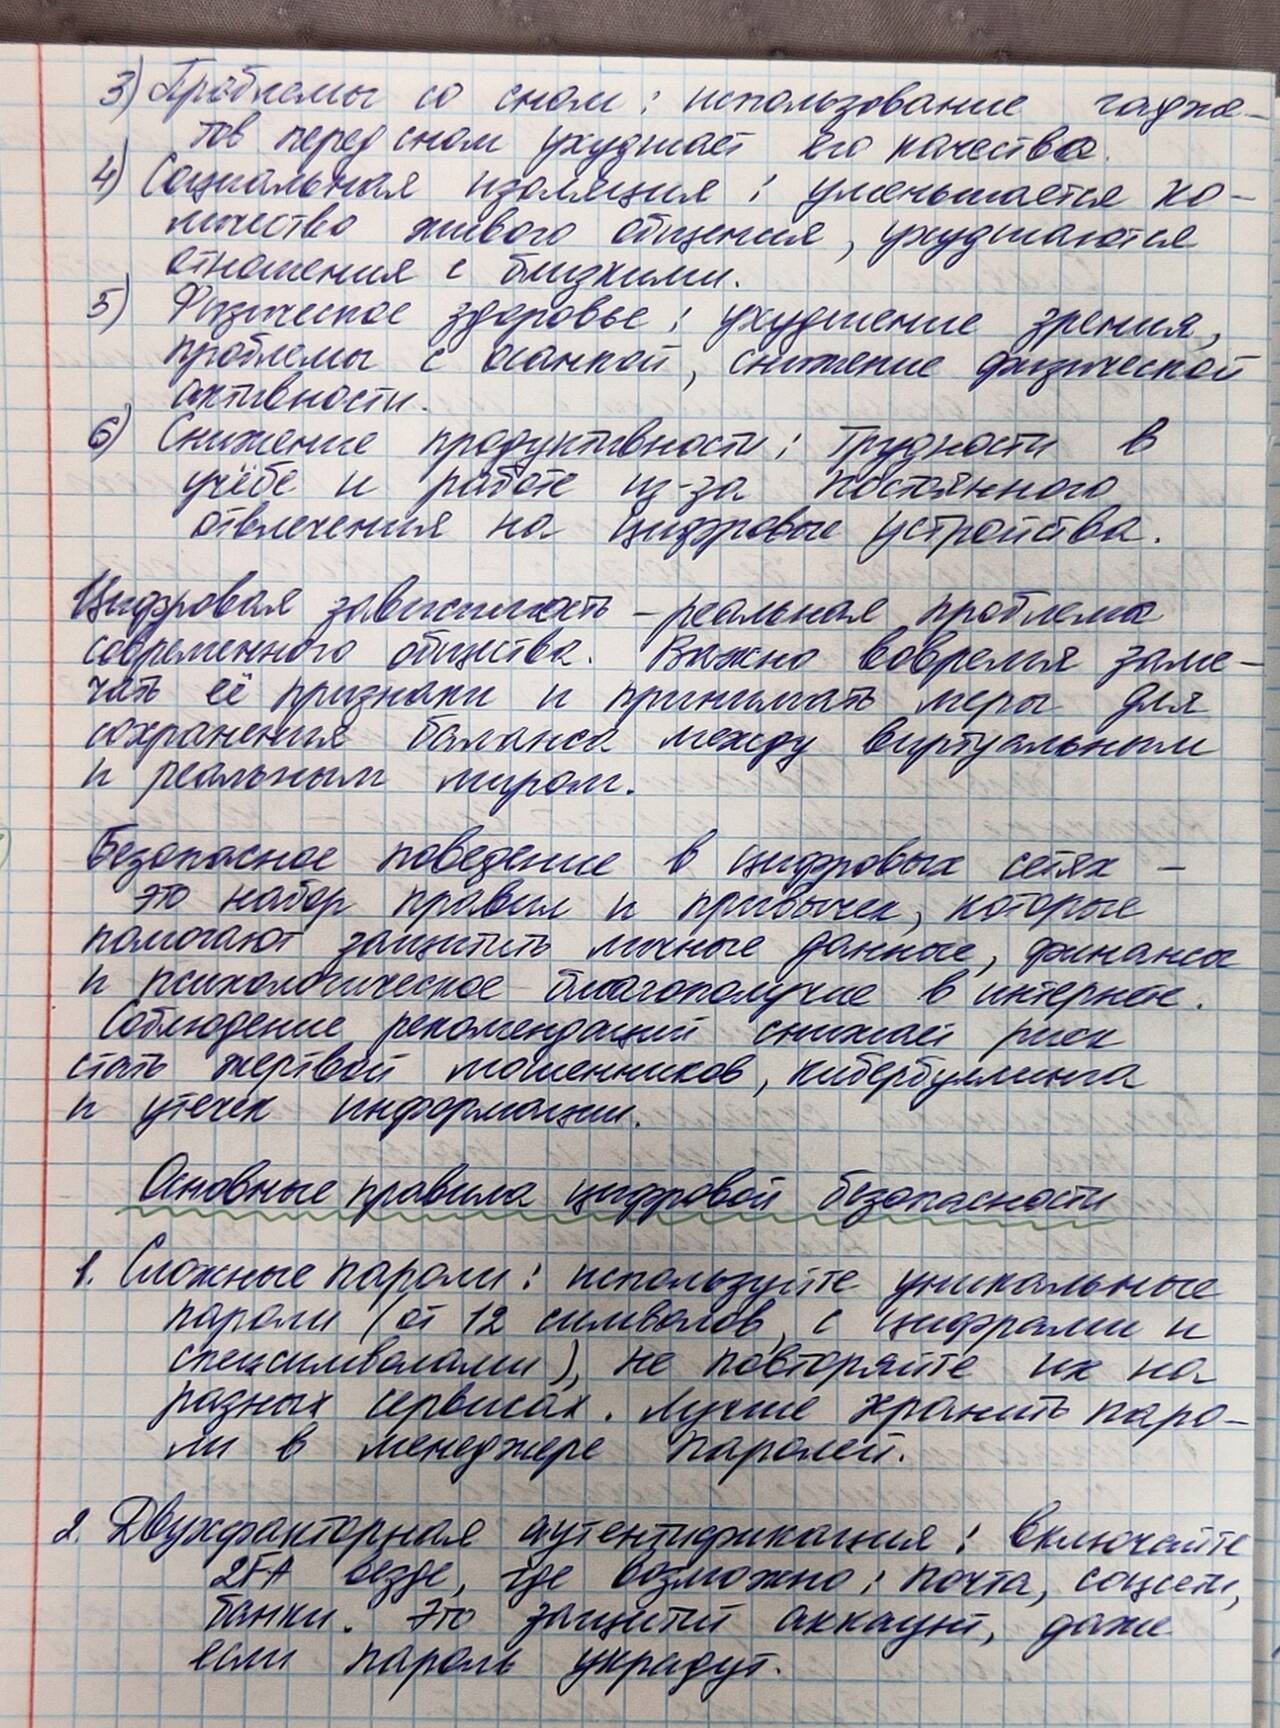 3) Проблемы со сном: использование гадже-
тов перед сном ухудшает его качество.
4) Социальная изоляция: уменьшается ко-
личество живого общения, ухудшаются
отношения с близкими.
5) Физическое здоровье: ухудшение зрения,
проблемы с осанкой, снижение физической
активности.
6) Снижение продуктивности: трудности в
учёбе и работе из-за постоянного
отвлечения на цифровые устройства.
Цифровая зависимость – реальная проблема
современного общества. Важно вовремя заме-
чать её признаки и принимать меры для
сохранения баланса между виртуальным
и реальным миром.
Безопасное поведение в цифровых сетях –
это набор правил и привычек, которые
помогают защитить личные данные, финансы
и психологическое благополучие в интернете.
Соблюдение рекомендаций снижает риск
стать жертвой мошенников, кибербуллинга
и утечек информации.
Основные правила цифровой безопасности
1. Сложные пароли: используйте уникальные
пароли (от 12 символов, с цифрами и
спецсимволами), не повторяйте их на
разных сервисах. Лучше хранить паро-
ли в менеджере паролей.
2. Двухфакторная аутентификация: включайте
2FA везде, где возможно: почта, соцсети,
банки. Это защитит аккаунт, даже
если пароль украдут.